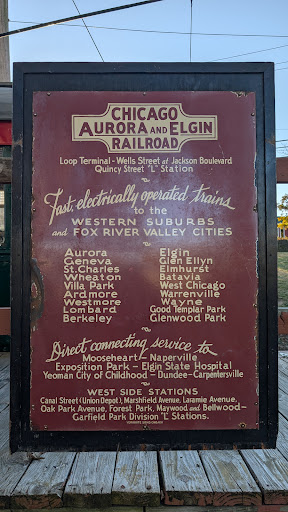 CHICAGO
AURORA AND ELGIN
RAILROAD
Loop Terminal - Wells Street at Jackson Boulevard
Quincy Street "L" Station
Fast, electrically operated trains
to the
WESTERN SUBURBS
and FOX RIVER VALLEY CITIES
Aurora
Geneva
St. Charles
Wheaton
Villa Park
Ardmore
Westmore
Lombard
Berkeley
Elgin
Glen Ellyn
Elmhurst
Batavia
West Chicago
Warrenville
Wayne
Good Templar Park
Glenwood Park
Direct connecting service to
Mooseheart - Naperville
Exposition Park - Elgin State Hospital
Yeoman City of Childhood - Dundee - Carpentersville
WEST SIDE STATIONS
Canal Street (Union Depot), Marshfield Avenue, Laramie Avenue,
Oak Park Avenue, Forest Park, Maywood and Bellwood -
Garfield Park Division "L" Stations.